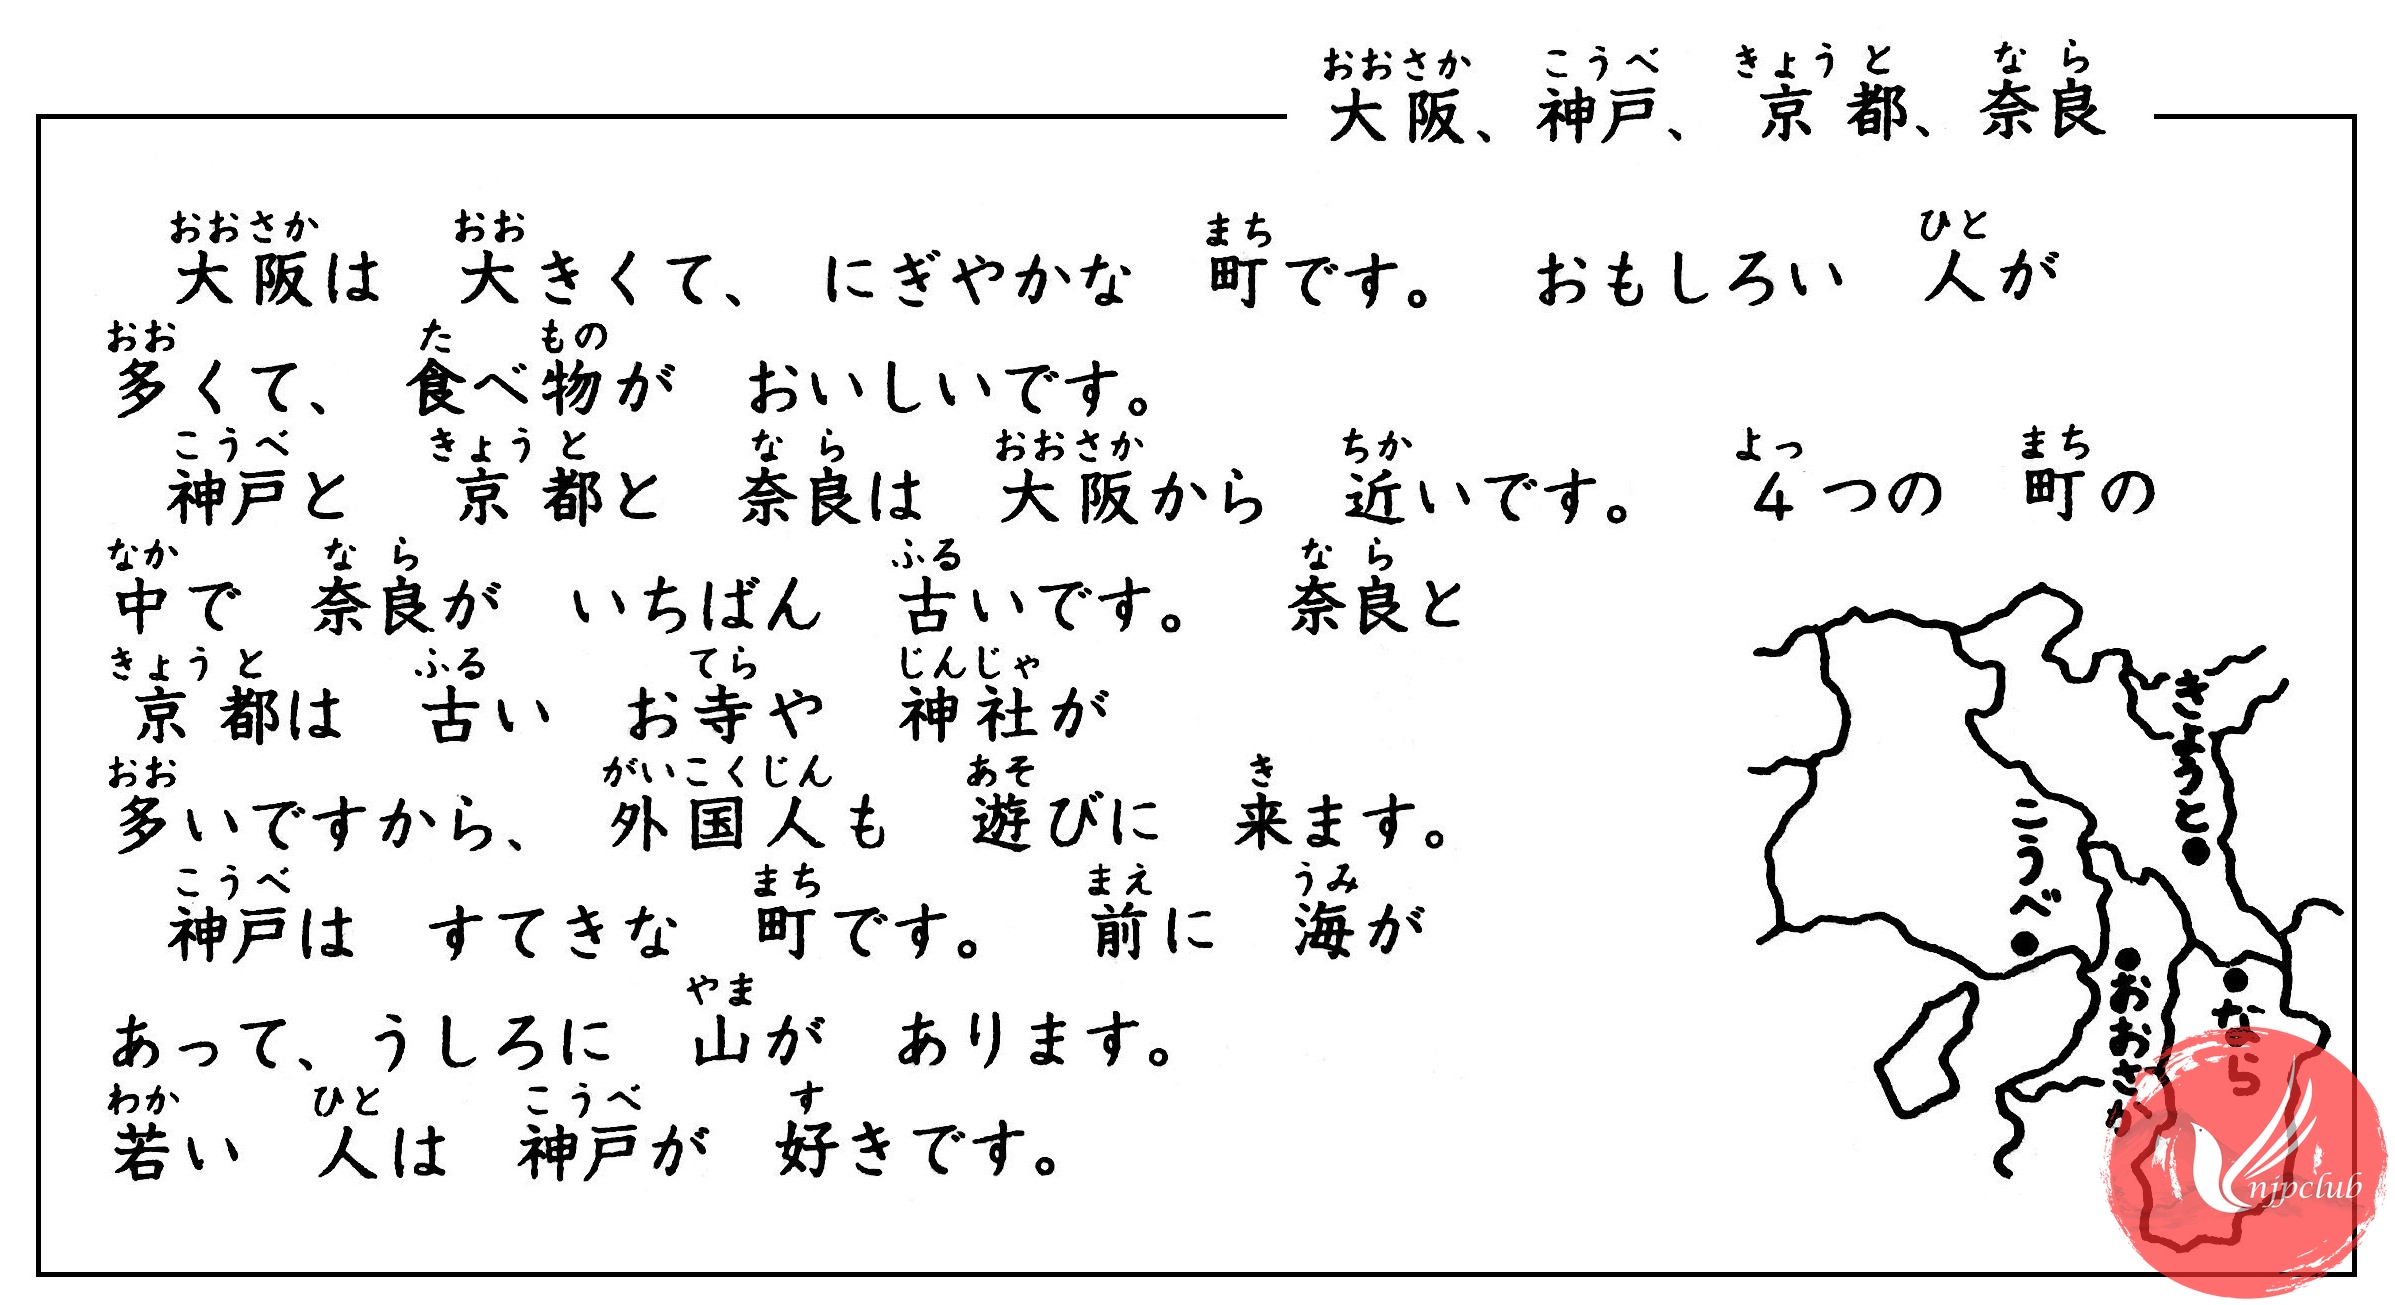 おおさか こうべ きょうと なら
大阪、神戸、京都、奈良
おおさか おお まち ひと
大阪は 大きくて、にぎやかな 町です。 おもしろい 人が
おお た もの
多くて、 食べ物が おいしいです。
こうべ きょうと なら おおさか ちか よっ まち
神戸と 京都と 奈良は 大阪から 近いです。 4つの 町の
なか なら ふる なら
中で 奈良が いちばん 古いです。 奈良と
きょうと ふる てら じんじゃ
京都は 古い お寺や 神社が
おお がいこくじん あそ き
多いですから、 外国人も 遊びに 来ます。
こうべ まち まえ うみ
神戸は すてきな 町です。 前に 海が
やま
あって、うしろに 山が あります。
わか ひと こうべ す
若い 人は 神戸が 好きです。
きょうと
こうべ
おおさか
なら
njpclub